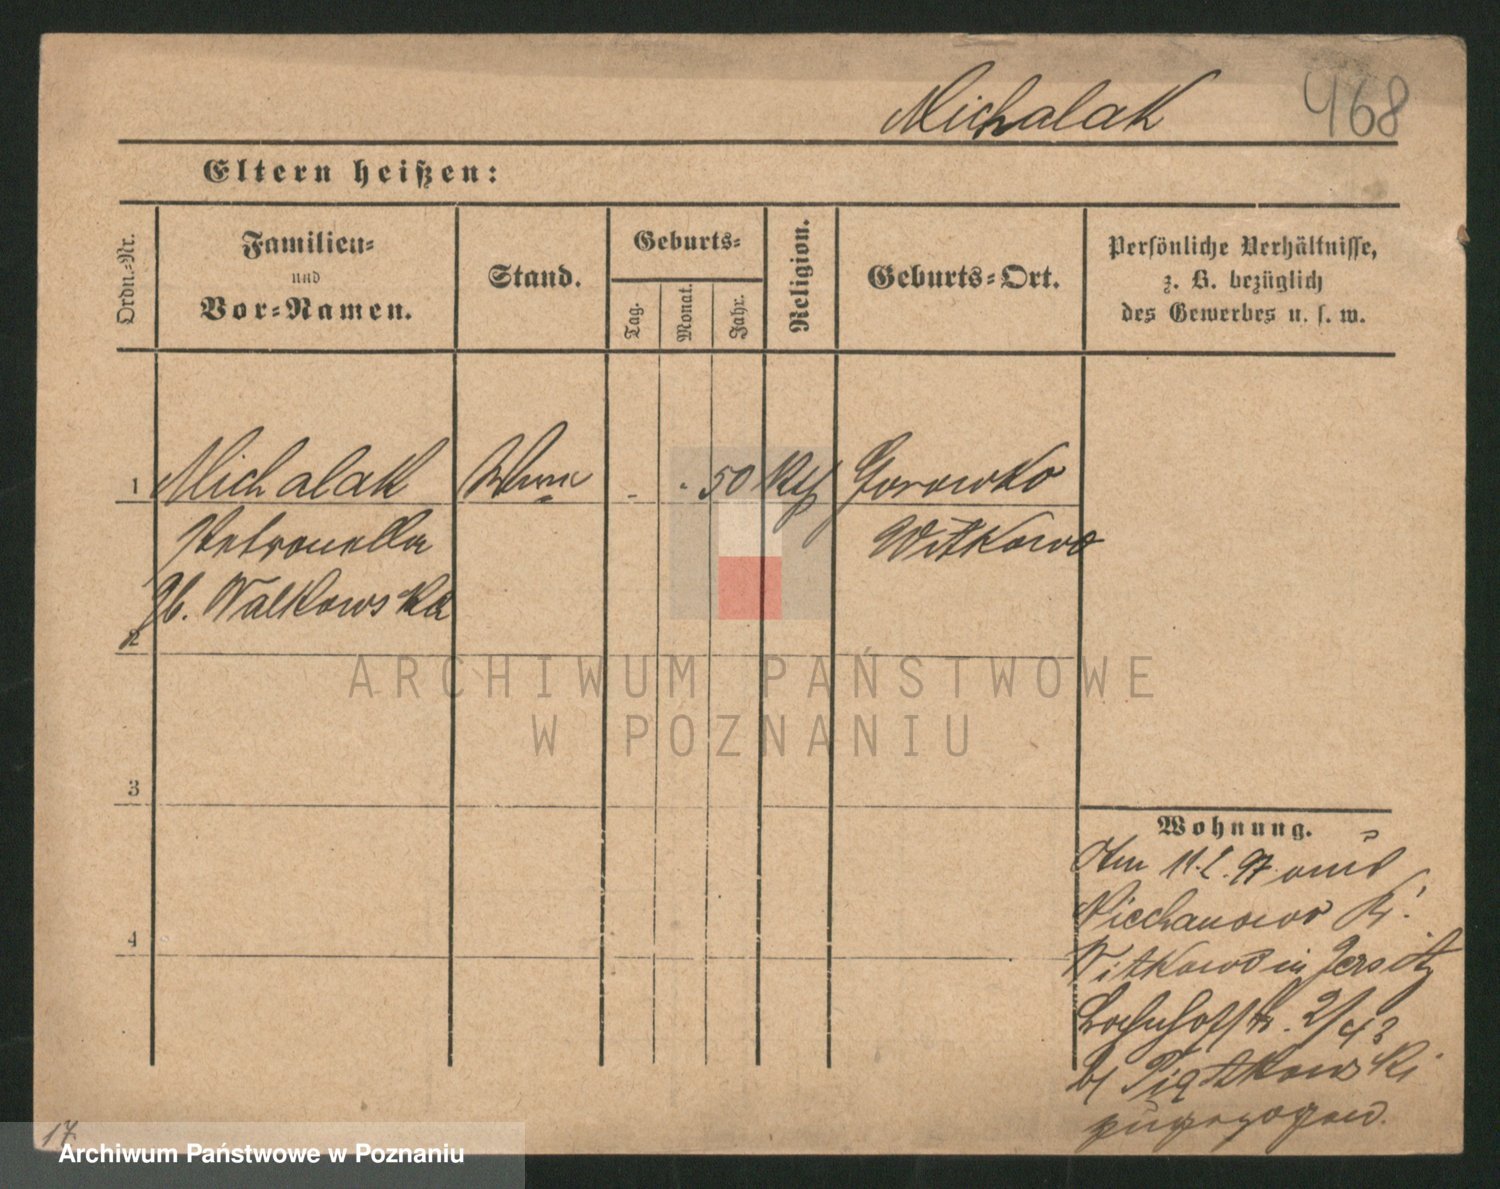 Michalak 468
Eltern heißen:
Ordn.-Nr.
Familien-
und
Vor-Namen.
Stand.
Geburts-
Tag.
Monat.
Jahr.
Religion.
Geburts-Ort.
Persönliche Verhältnisse,
z. B. bezüglich
des Gewerbes u. s. w.
1 Michalak Wwe - - 50 kth Gorowko
Petronella Witkowo
Gb. Walkowska
2
3
4
ARCHIWUM PAŃSTWOWE
W POZNANIU
Wohnung.
Am 11.2.97 aus
Niechanowo Kr.
Witkowo in Jersitz
2/43
b/ Piątkowski
zugezogen.
17
Archiwum Państwowe w Poznaniu